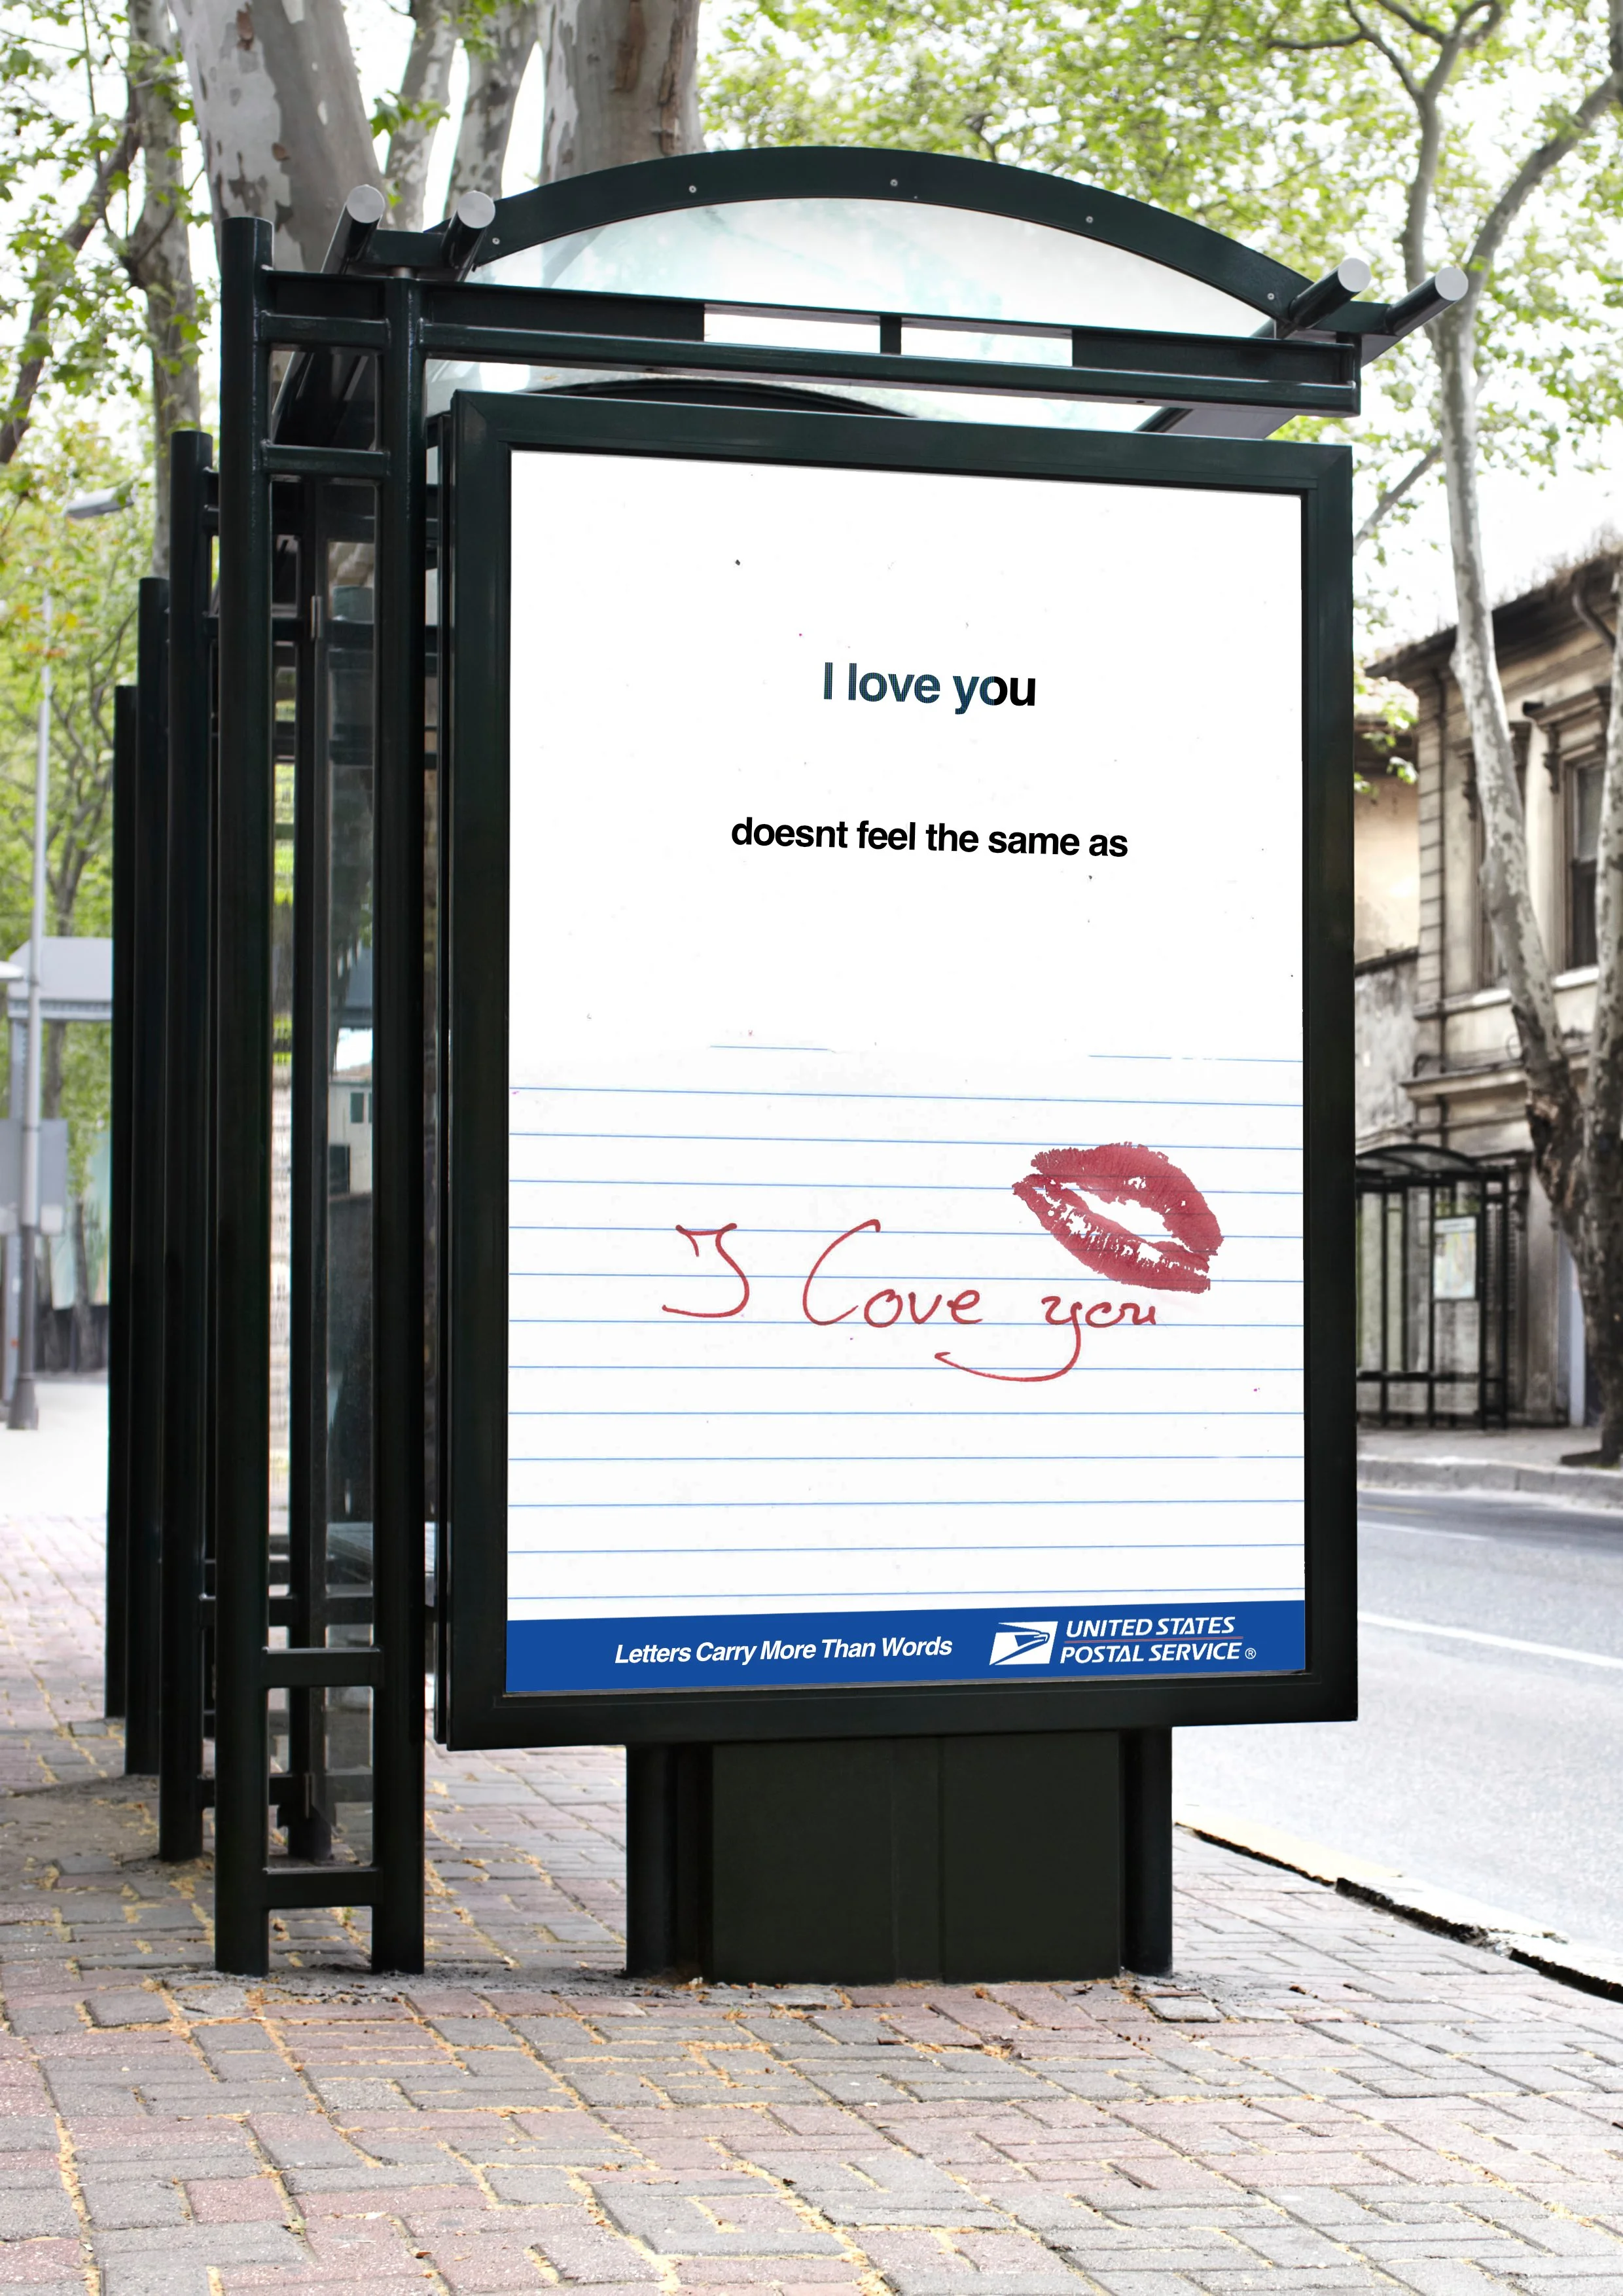 I love you
doesnt feel the same as
I Love you
Letters Carry More Than Words
UNITED STATES
POSTAL SERVICE®